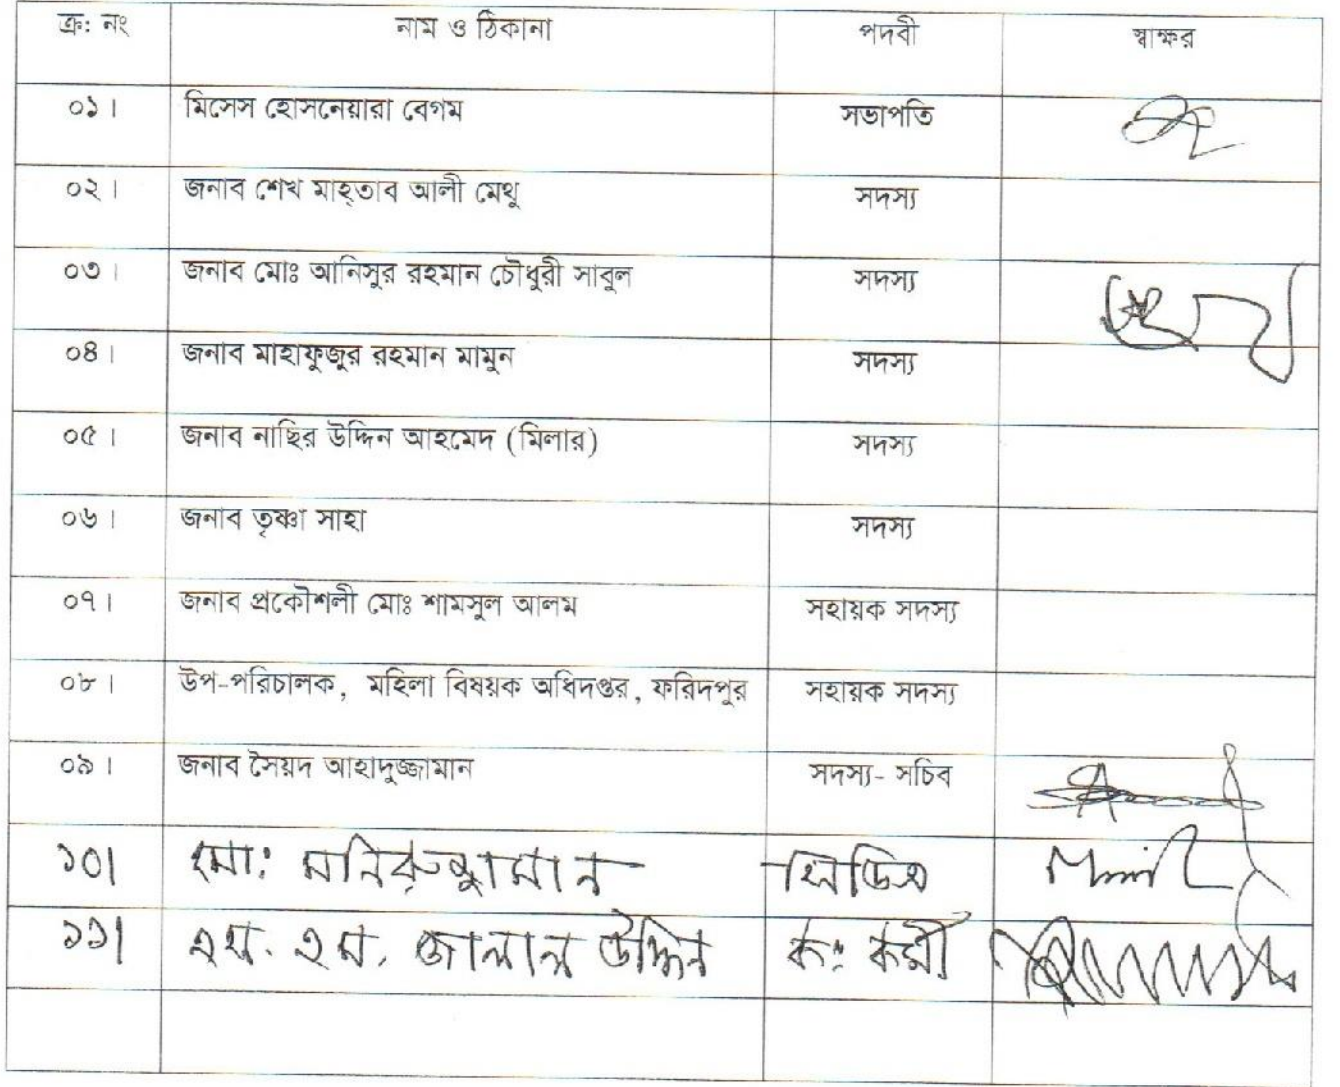 ক্র: নং নাম ও ঠিকানা পদবী স্বাক্ষর
০১। মিসেস হোসনেয়ারা বেগম সভাপতি
০২। জনাব শেখ মাহ্তাব আলী মেথু সদস্য
০৩। জনাব মোঃ আনিসুর রহমান চৌধুরী সাবুল সদস্য
০৪। জনাব মাহাফুজুর রহমান মামুন সদস্য
০৫। জনাব নাছির উদ্দিন আহমেদ (মিলার) সদস্য
০৬। জনাব তৃষ্ণা সাহা সদস্য
০৭। জনাব প্রকৌশলী মোঃ শামসুল আলম সহায়ক সদস্য
০৮। উপ-পরিচালক, মহিলা বিষয়ক অধিদপ্তর, ফরিদপুর সহায়ক সদস্য
০৯। জনাব সৈয়দ আহাদুজ্জামান সদস্য- সচিব
১০। মোঃ মনিরুজ্জামান সিডিও
১১। এম. এম. জালাল উদ্দিন